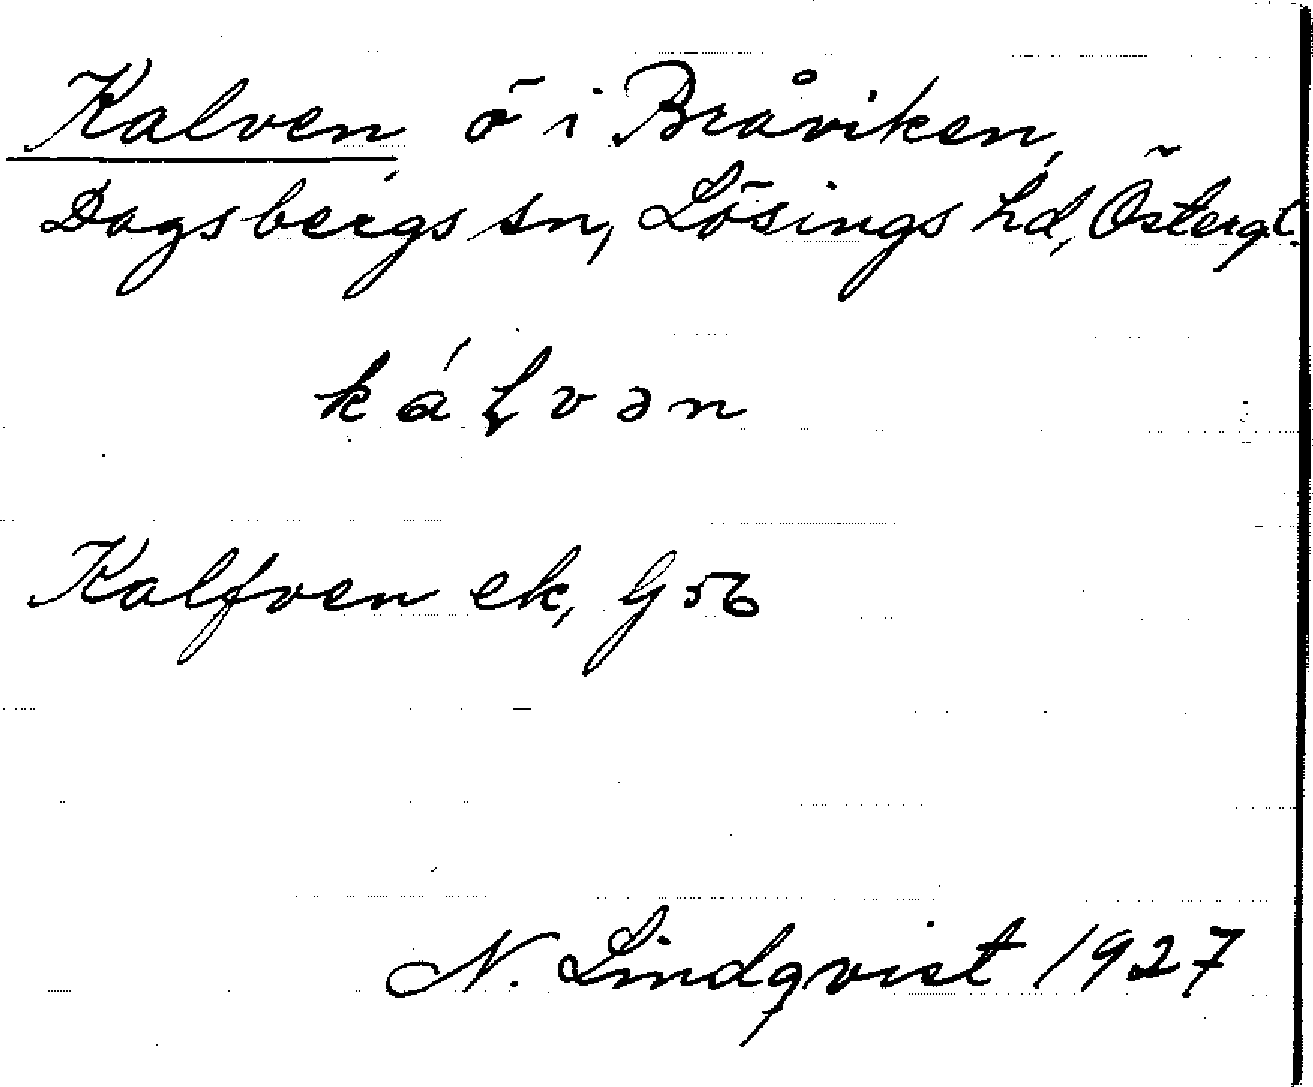 Kalven ö i Bråviken,
Dagsbergs sn, Lösings hd, Östergl.
kálvən
Kalfven ek, G 56
N. Lindqvist 1927